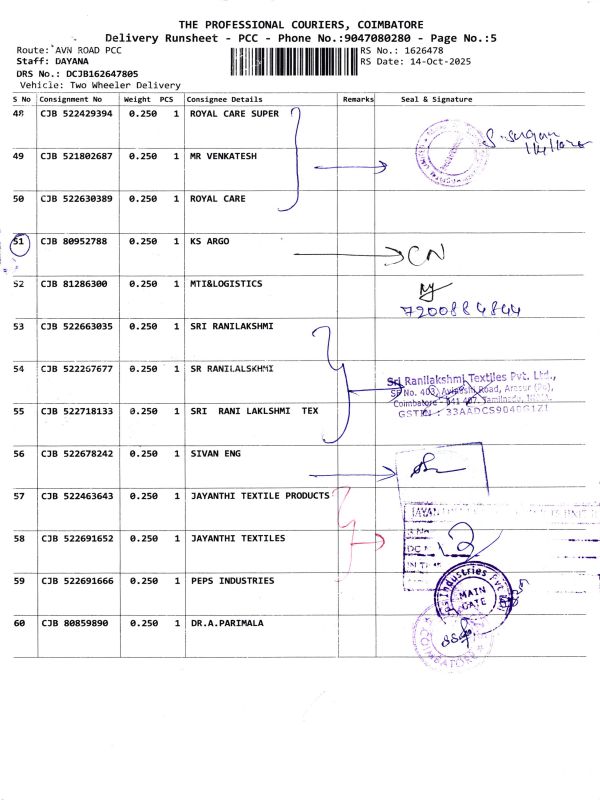 THE PROFESSIONAL COURIERS, COIMBATORE
Delivery Runsheet - PCC - Phone No.:9047080280 - Page No.:5
Route: AVN ROAD PCC
RS No.: 1626478
Staff: DAYANA
RS Date: 14-Oct-2025
DRS No.: DCJB162647805
Vehicle: Two Wheeler Delivery
S No Consignment No Weight PCS Consignee Details Remarks Seal & Signature
48 CJB 522429394 0.250 1 ROYAL CARE SUPER
49 CJB 521802687 0.250 1 MR VENKATESH
50 CJB 522630389 0.250 1 ROYAL CARE
51 CJB 80952788 0.250 1 KS ARGO CN
52 CJB 81286300 0.250 1 MTI&LOGISTICS
7200884844
53 CJB 522663035 0.250 1 SRI RANILAKSHMI
54 CJB 522267677 0.250 1 SR RANILALSKHMI
Sri Ranilakshmi Textiles Pvt. Ltd.,
SF No. 403, Avinashi Road, Arasur (Po),
Coimbatore - 641 407. Tamilnadu, INDIA.
GSTIN : 33AADCS9040G1Z1
55 CJB 522718133 0.250 1 SRI RANI LAKLSHMI TEX
56 CJB 522678242 0.250 1 SIVAN ENG
57 CJB 522463643 0.250 1 JAYANTHI TEXTILE PRODUCTS
58 CJB 522691652 0.250 1 JAYANTHI TEXTILES
59 CJB 522691666 0.250 1 PEPS INDUSTRIES
Industries Pvt
MAIN
GATE
60 CJB 80859890 0.250 1 DR.A.PARIMALA
COIMBATORE